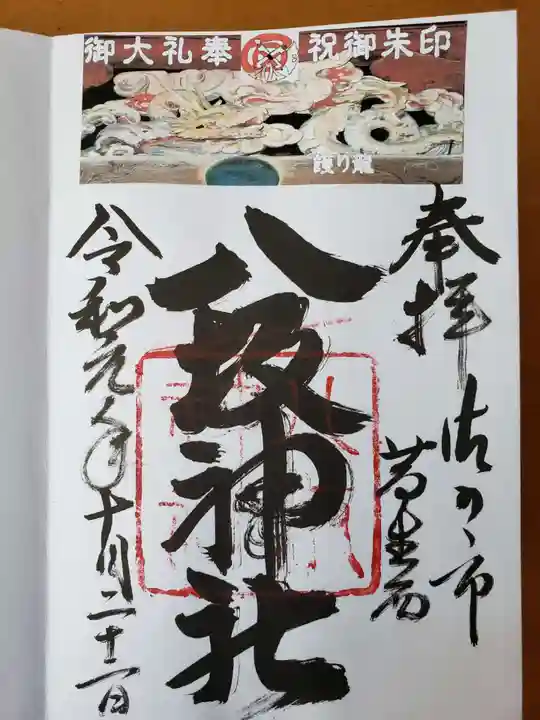 御大礼奉祝御朱印
護り龍
奉拝
佐の市
葛生町
八坂神社
令和元年十月二十二日